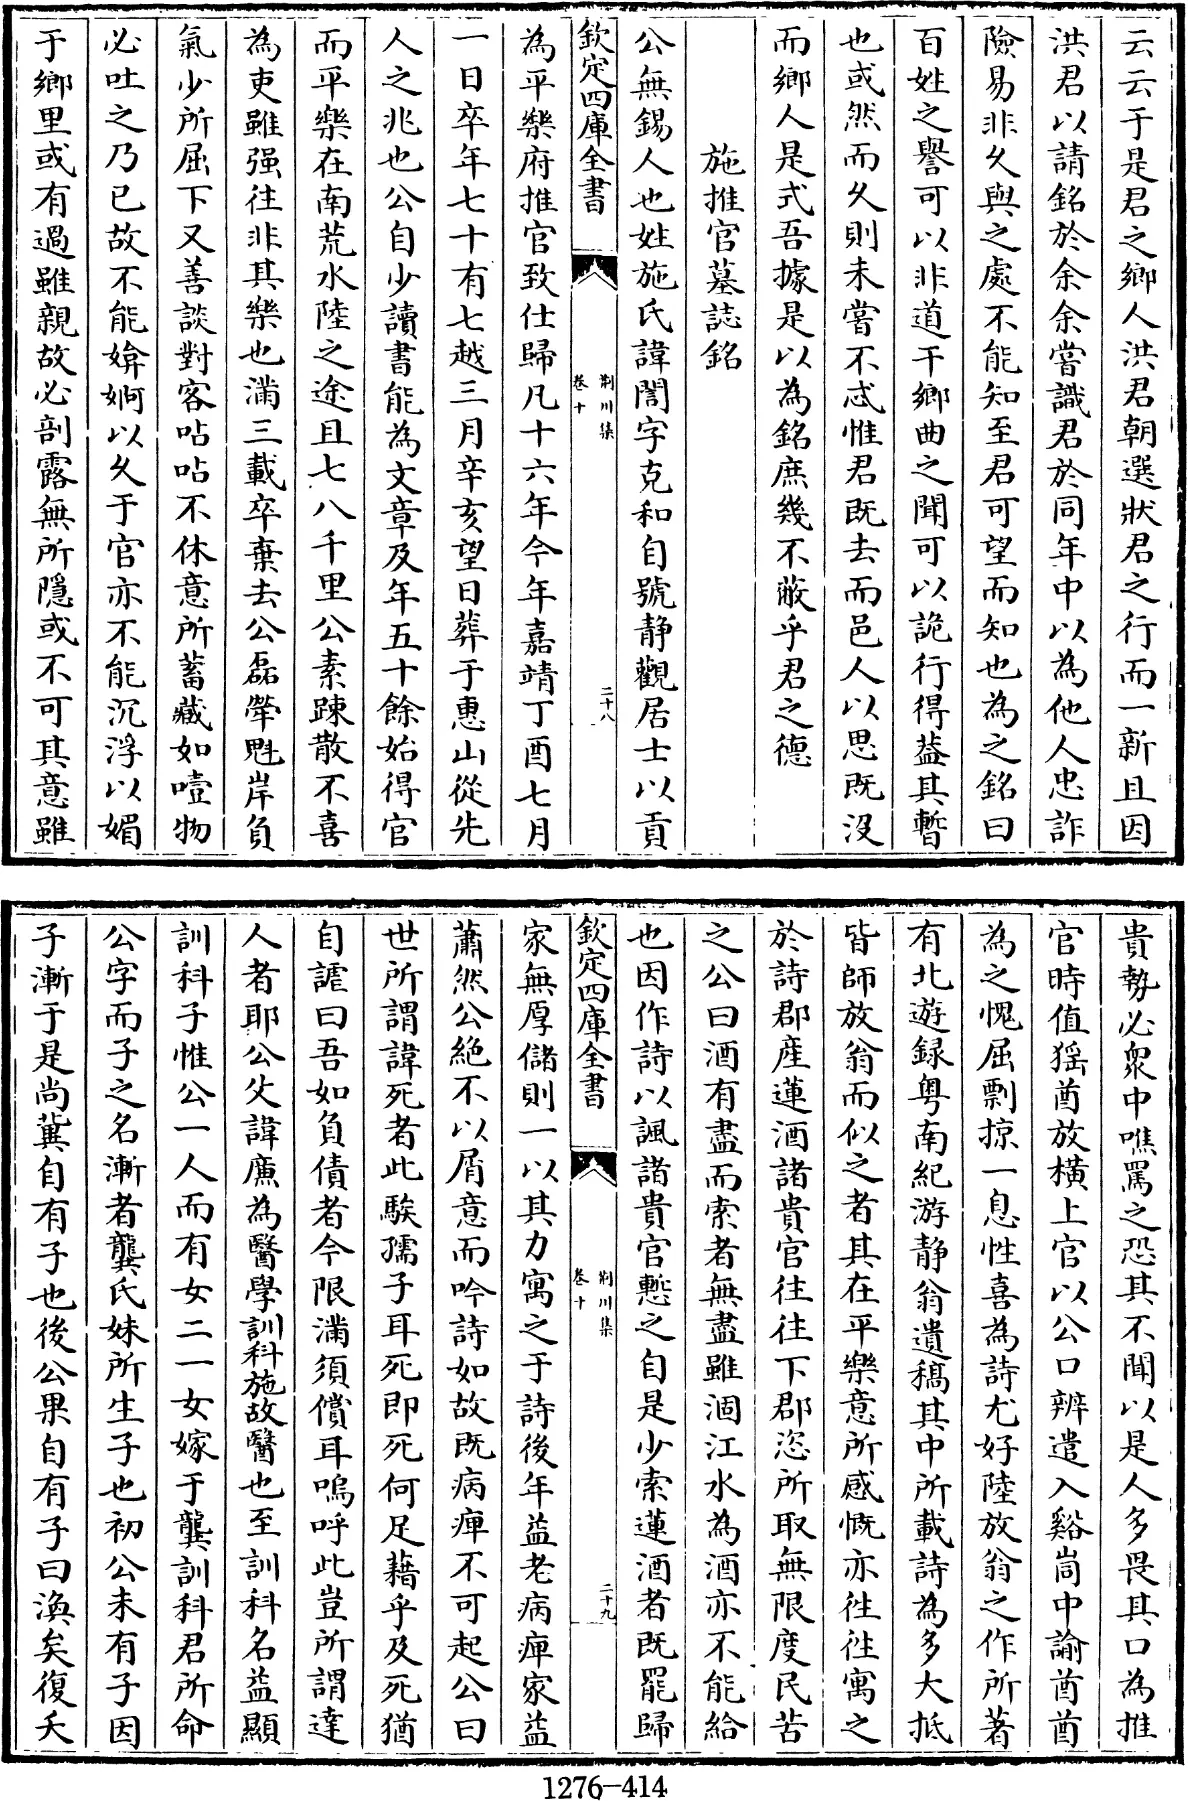 云云于是君之鄉人洪君朝選狀君之行而一新且因
洪君以請銘於余余嘗識君於同年中以為他人忠詐
險易非久與之處不能知至君可望而知也為之銘曰
百姓之譽可以非道干鄉曲之聞可以詭行得葢其暫
也或然而久則未嘗不忒惟君既去而邑人以思既没
而鄉人是式吾據是以為銘庶幾不蔽乎君之德
施推官墓誌銘
公無錫人也姓施氏諱誾字克和自號静觀居士以貢
欽定四庫全書
荆川集
卷十
二十八
為平樂府推官致仕歸凡十六年今年嘉靖丁酉七月
一日卒年七十有七越三月辛亥望日葬于惠山從先
人之兆也公自少讀書能為文章及年五十餘始得官
而平樂在南荒水陸之途且七八千里公素踈散不喜
為吏雖强往非其樂也滿三載卒棄去公磊犖魁岸負
氣少所屈下又善談對客呫呫不休意所蓄藏如噎物
必吐之乃已故不能媕婀以久于官亦不能沉浮以媚
于鄉里或有過雖親故必剖露無所隱或不可其意雖
貴勢必衆中噍罵之恐其不聞以是人多畏其口為推
官時值猺酋放横上官以公口辨遣入谿峝中諭酋酋
為之愧屈剽掠一息性喜為詩尤好陸放翁之作所著
有北遊録粤南紀游静翁遺稿其中所載詩為多大抵
皆師放翁而似之者其在平樂意所感慨亦徃徃寓之
於詩郡産蓮酒諸貴官往往下郡恣所取無限度民苦
之公曰酒有盡而索者無盡雖涸江水為酒亦不能給
也因作詩以諷諸貴官慙之自是少索蓮酒者既罷歸
欽定四庫全書
荆川集
卷十
二十九
家無厚儲則一以其力寓之于詩後年益老病痺家益
蕭然公絶不以屑意而吟詩如故既病痺不可起公曰
世所謂諱死者此騃孺子耳死即死何足藉乎及死猶
自謔曰吾如負債者今限滿須償耳嗚呼此豈所謂達
人者耶公父諱廉為醫學訓科施故醫也至訓科名益顯
訓科子惟公一人而有女二一女嫁于龔訓科君所命
公字而子之名漸者龔氏妹所生子也初公未有子因
子漸于是尚冀自有子也後公果自有子曰渙矣復夭
1276-414